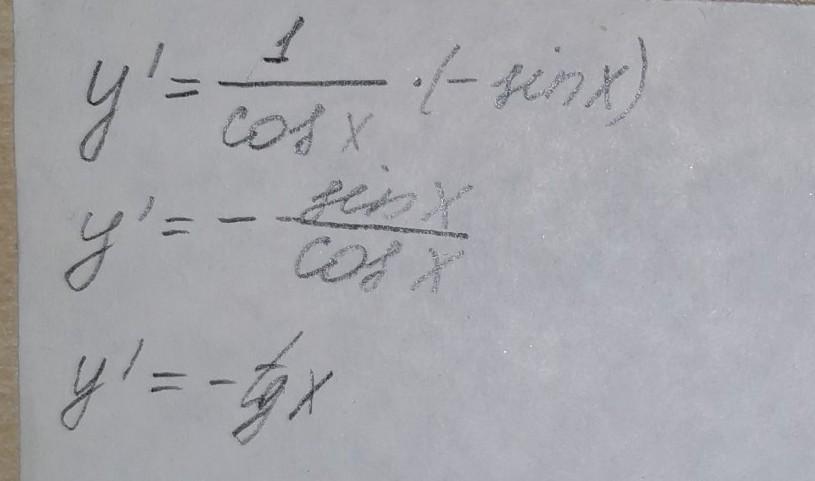 y' = 1/cos x · (- sin x)
y' = - sin x/cos x
y' = - tg x